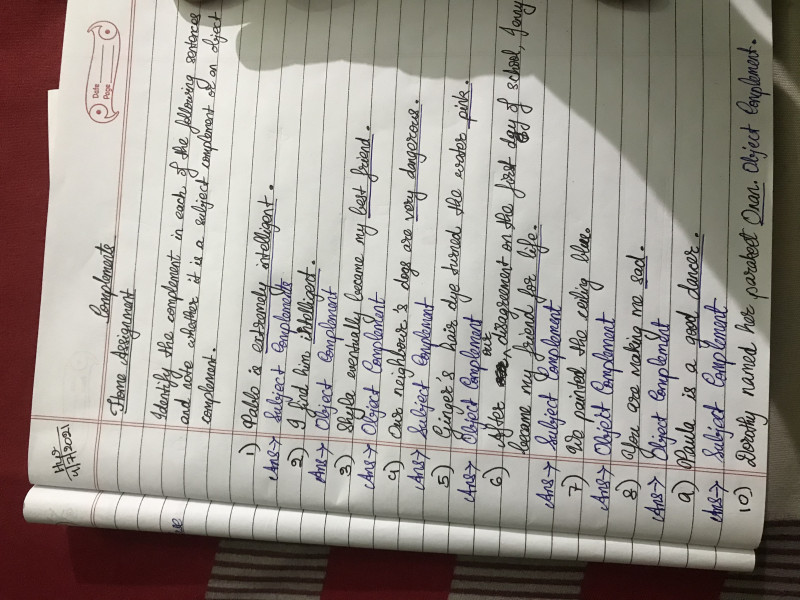 Date
Page
H.W
4/7/2021
Complements
Home Assignment
Identify the complement in each of the following sentences
and note whether it is a subject complement or an object
complement.
1) Pablo is extremely intelligent.
Ans→ Subject Complements
2) I find him intelligent.
Ans→ Object Complement
3) Skyle eventually became my best friend.
Ans→ Object Complement
4) Our neighbour's dogs are very dangerous.
Ans→ Subject Complement
5) Ginger's hair dye turned the water pink.
Ans→ Object Complement
6) After our disagreement on the first day of school, Jenny
became my friend for life.
Ans→ Subject Complement
7) We painted the ceiling blue.
Ans→ Object Complement
8) You are making me sad.
Ans→ Object Complement
9) Paula is a good dancer.
Ans→ Subject Complement
10) Dorothy named her parakeet Oran. Object Complement.